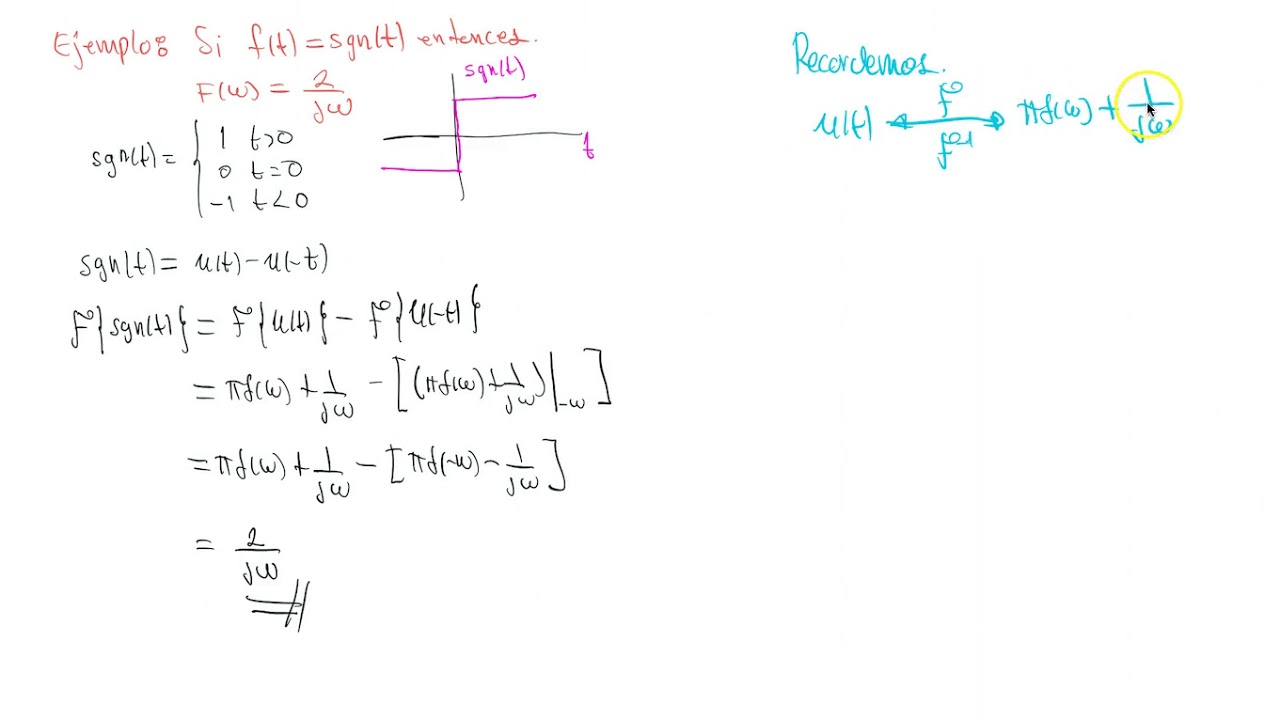 Ejemplo: Si f(t) = sgn(t) entonces.
F(ω) = 2/jω
sgn(t)
sgn(t) = { 1 t>0
0 t=0
-1 t<0
t
sgn(t) = u(t) - u(-t)
F{sgn(t)} = F{u(t)} - F{u(-t)}
= πδ(ω) + 1/jω - [(πδ(ω) + 1/jω)|-ω]
= πδ(ω) + 1/jω - [πδ(-ω) - 1/jω]
= 2/jω
Recordemos.
F
u(t) ↔ πδ(ω) + 1/jω
F-1